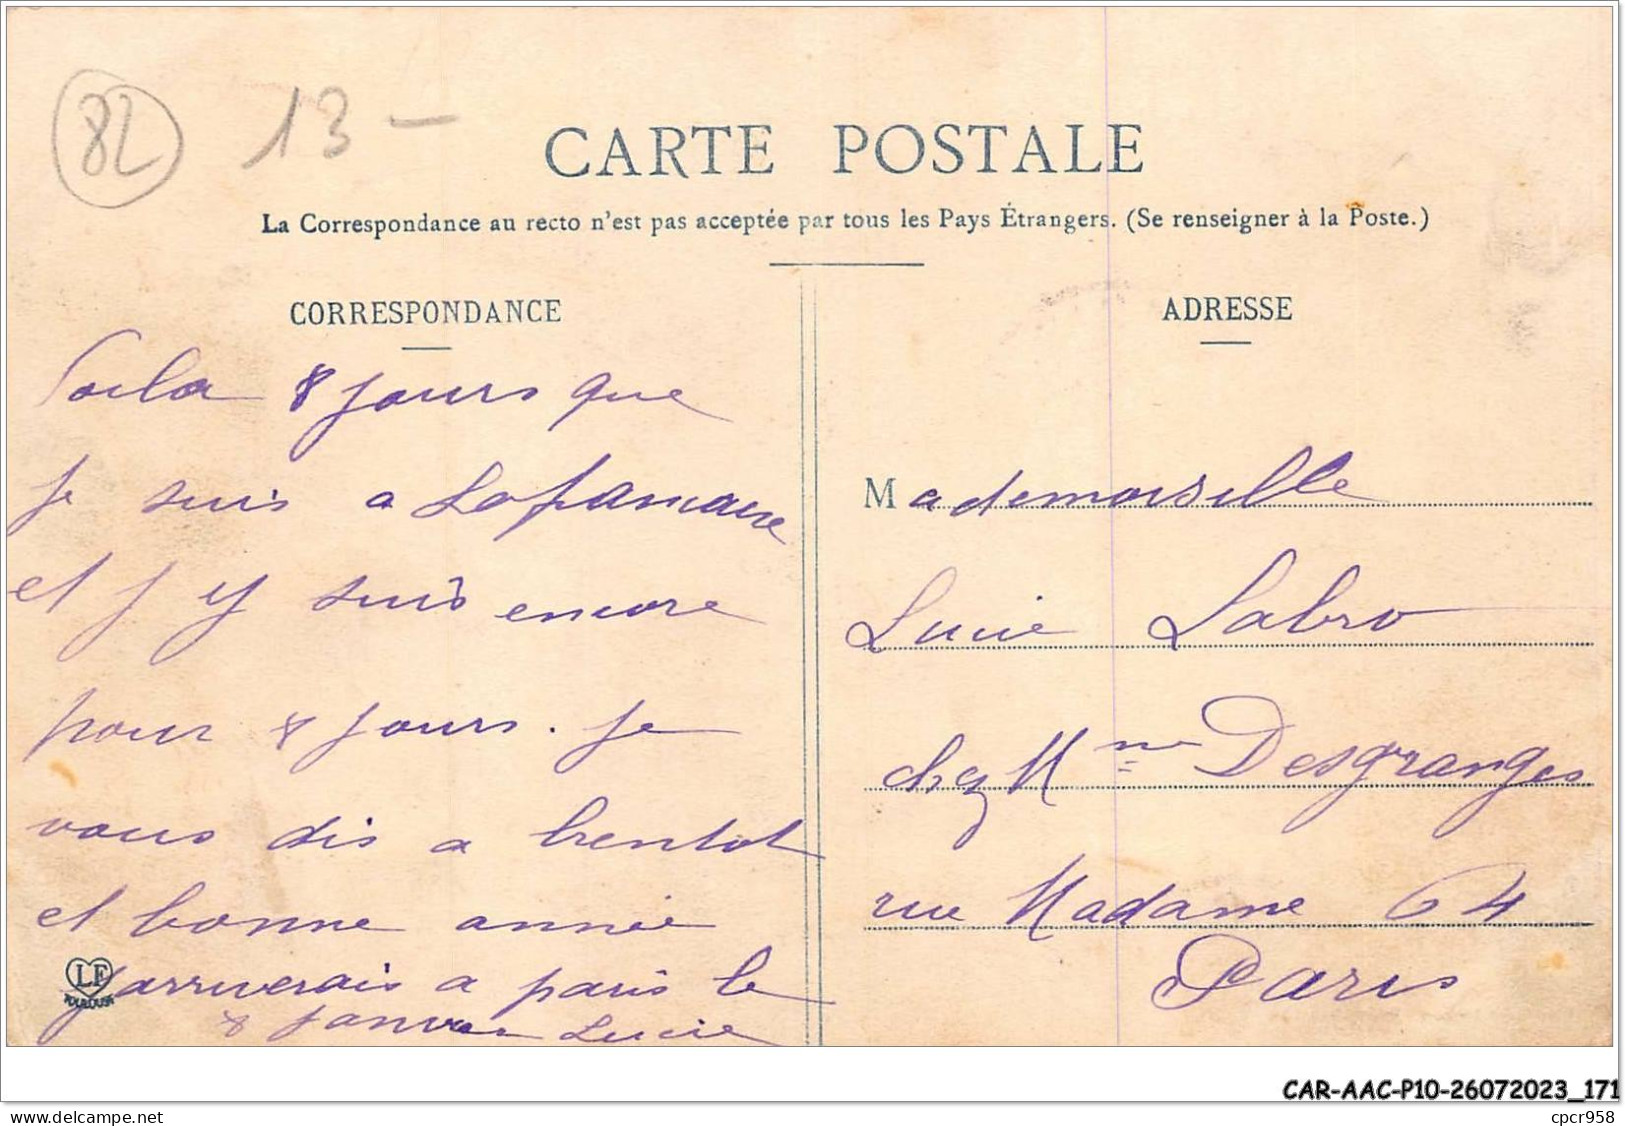 82 13 -
CARTE POSTALE
La Correspondance au recto n'est pas acceptée par tous les Pays Étrangers. (Se renseigner à la Poste.)
CORRESPONDANCE
Voila 8 jours que
je suis a
et j y suis encore
pour 8 jours. je
vous dis a bientot
et bonne année
jarriverais a paris le
8 janvier Lucie
LF
TOULOUSE
ADRESSE
Mademoiselle
Lucie Labro
chez Mme Desgranges
rue Madame 64
Paris
CAR-AAC-P10-26072023_171
Delcampe.net
cpcr958